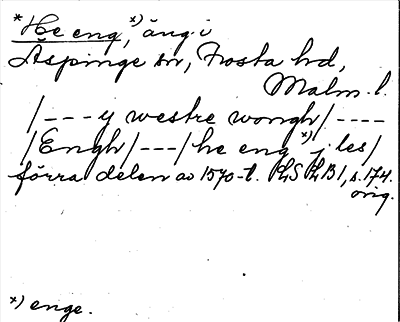 *He eng, x) äng i
Äspinge sn, Frosta hd,
Malm. l.
/---y westre wongh/----
/Engh/---/he eng x) j les/
förra delen av 1570-t. LSLB1, s. 174.
orig.
x) enge.